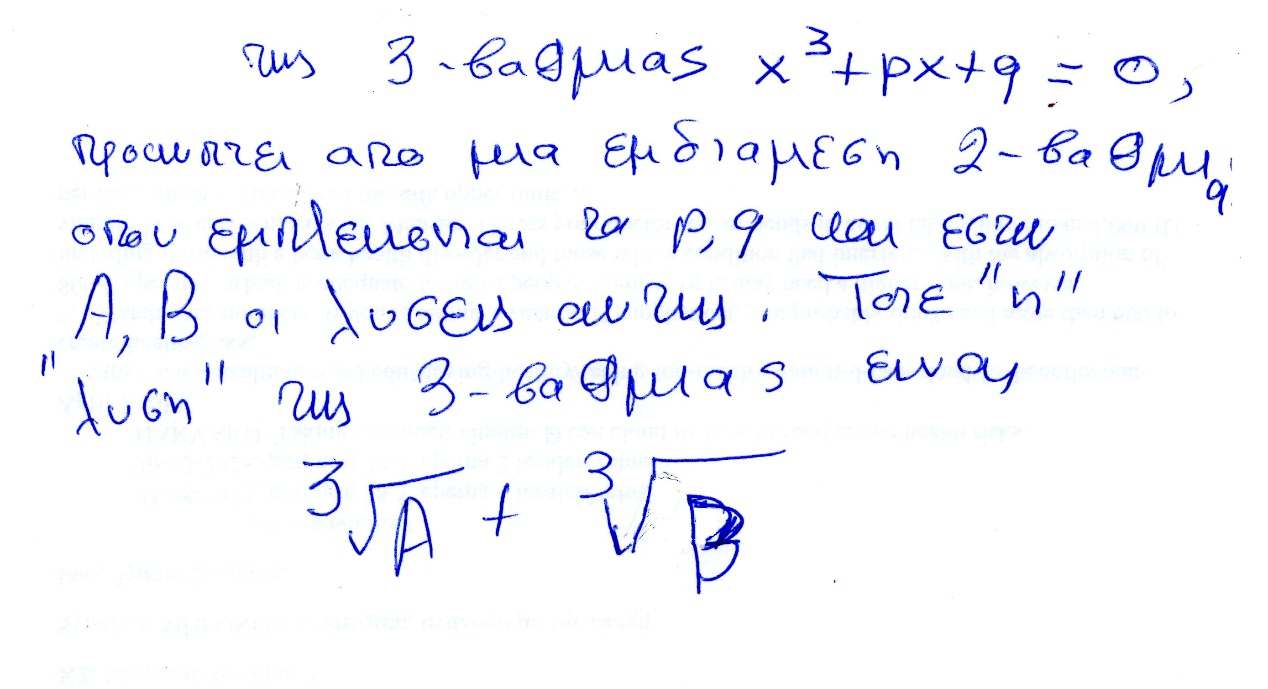 της 3-βαθμιας x³+px+q = 0,
προκυπτει απο μια ενδιαμεση 2-βαθμια
οπου εμπλεκονται τα p,q και εστω
A, B οι λυσεις αυτης. Τοτε "η"
"λυση" της 3-βαθμιας ειναι
∛A + ∛B